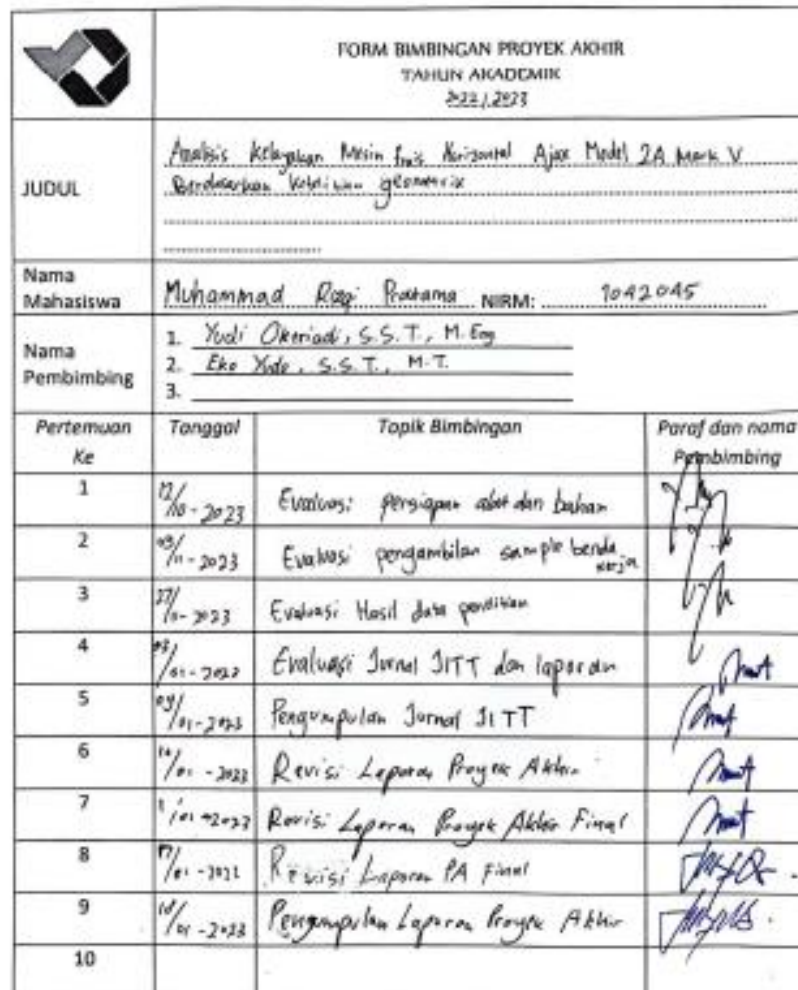 FORM BIMBINGAN PROYEK AKHIR
TAHUN AKADEMIK
2022 / 2023
JUDUL
Analisis Kelayakan Mesin frais Horizontal Ajax Model 2A Mark V
Berdasarkan Ketelitian geometrix
Nama Mahasiswa
Muhammad Rizqi Pratama NIRM: 1042045
Nama Pembimbing
1. Yudi Oktriadi, S.S.T., M.Eng
2. Eko Yudo, S.S.T., M.T.
3.
Pertemuan Ke Tanggal Topik Bimbingan Paraf dan nama Pembimbing
1 12/10 - 2023 Evaluasi persiapan alat dan bahan
2 /11 - 2023 Evaluasi pengambilan sample benda kerja
3 27/11 - 2023 Evaluasi Hasil data penelitian
4 03/01 - 2023 Evaluasi Jurnal JITT dan laporan
5 09/01 - 2023 Pengumpulan Jurnal JITT
6 /01 - 2023 Revisi Laporan Proyek Akhir
7 /01 - 2023 Revisi Laporan Proyek Akhir Final
8 17/01 - Revisi Laporan PA Final
9 18/01 - 2023 Pengumpulan Laporan Proyek Akhir
10